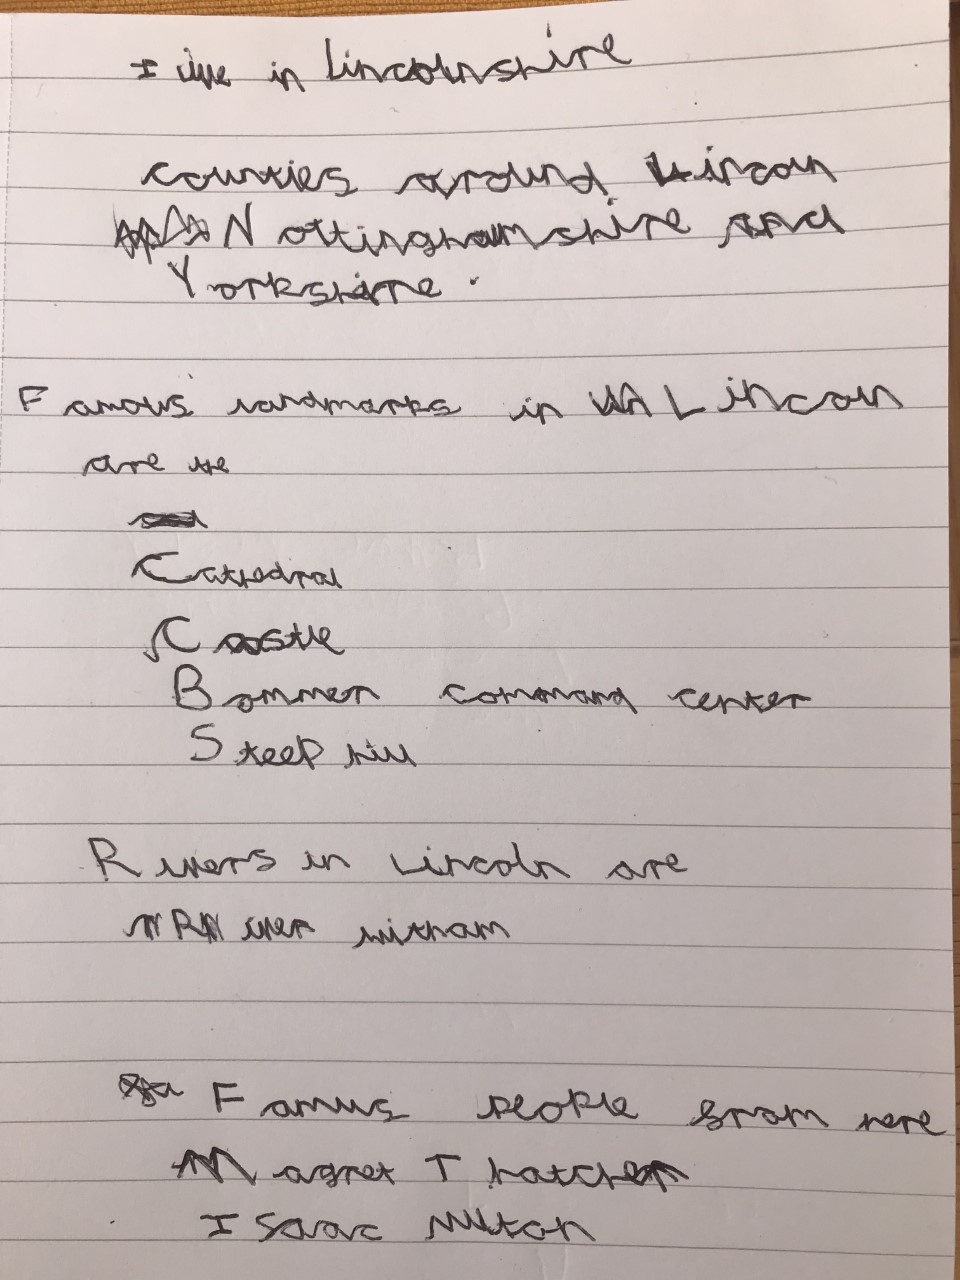 I live in Lincolnshire
counties around Lincoln
Nottinghamshire and
Yorkshire.
Famous landmarks in Lincoln
are the
Cathedral
Castle
Bommer command center
Steep hill
Rivers in Lincoln are
River witham
Famus people from here
Magret Thatcher
Isaac Nuton